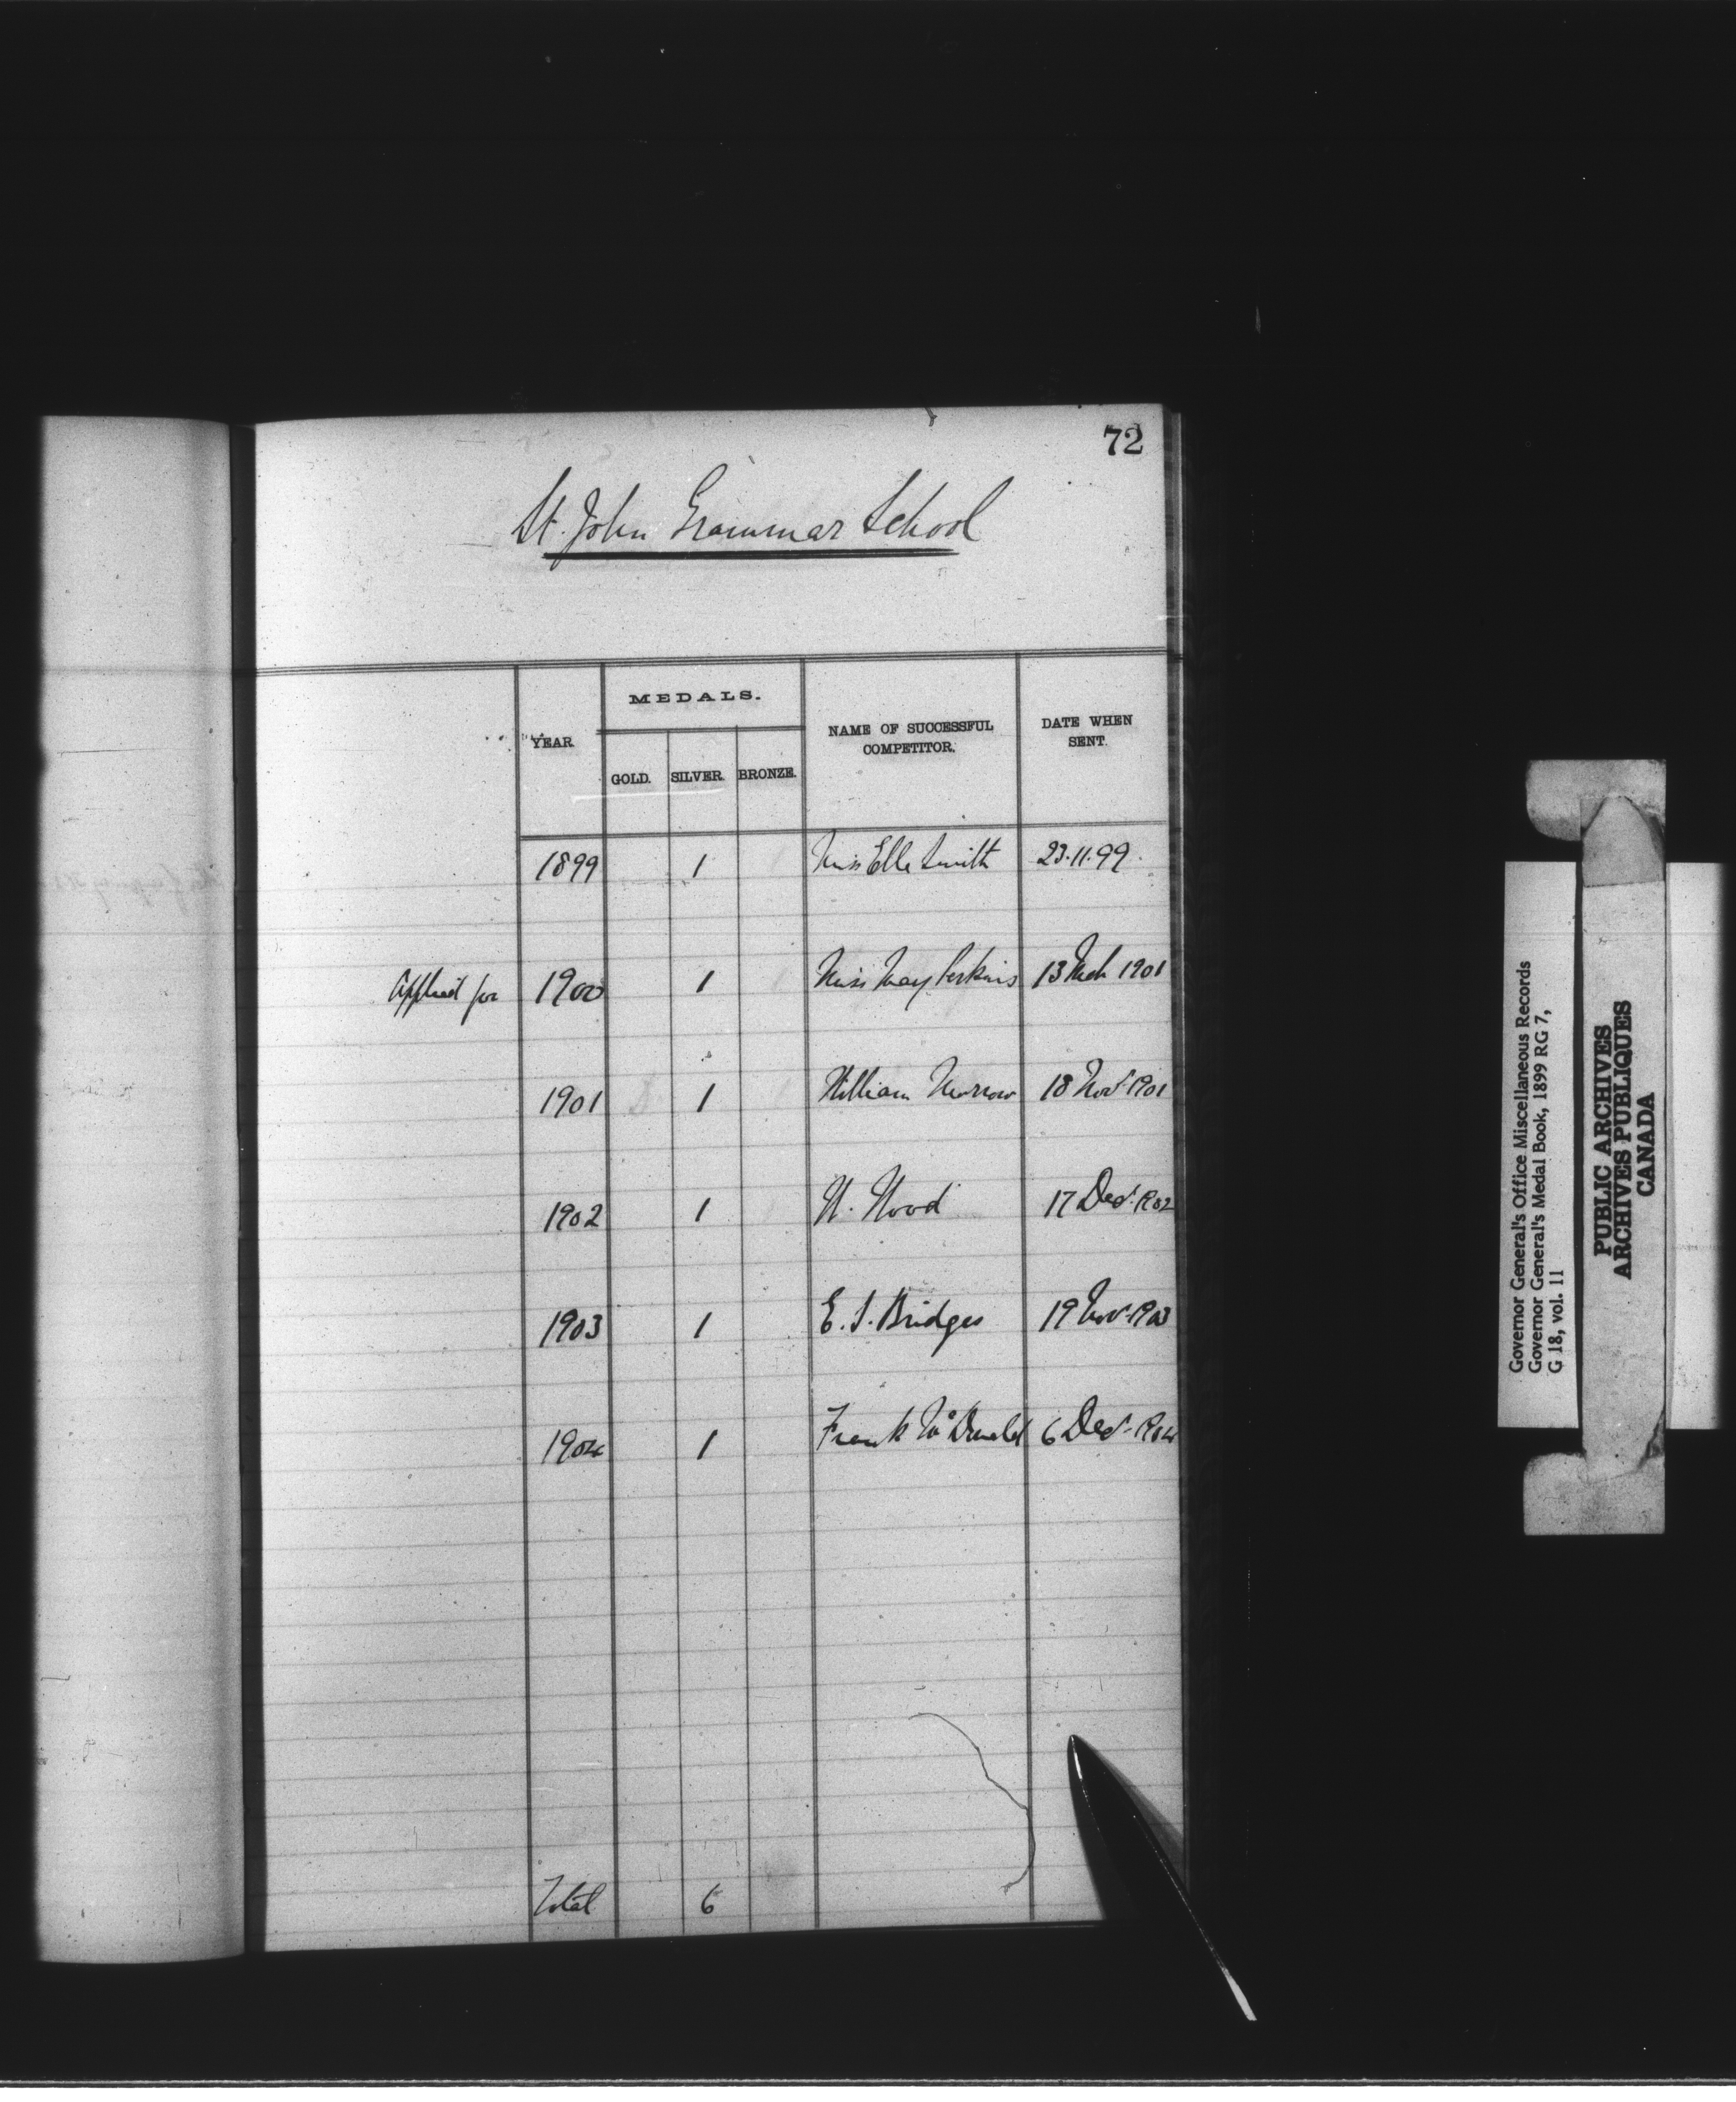 72
St. John Grammar School
YEAR.
MEDALS.
GOLD. SILVER. BRONZE.
NAME OF SUCCESSFUL
COMPETITOR.
DATE WHEN
SENT.
1899 1 Miss Elle Smith 23.11.99.
Applied for 1900 1 Miss May Perkins 13 Mch 1901
1901 1 William Morrow 18 Nov. 1901
1902 1 W. Wood 17 Dec. 1902
1903 1 E. S. Bridges 19 Nov. 1903
1904 1 Frank McDonald 6 Dec. 1904
Total 6
Governor General's Office Miscellaneous Records
Governor General's Medal Book, 1899 RG 7,
G 18, vol. 11
PUBLIC ARCHIVES
ARCHIVES PUBLIQUES
CANADA